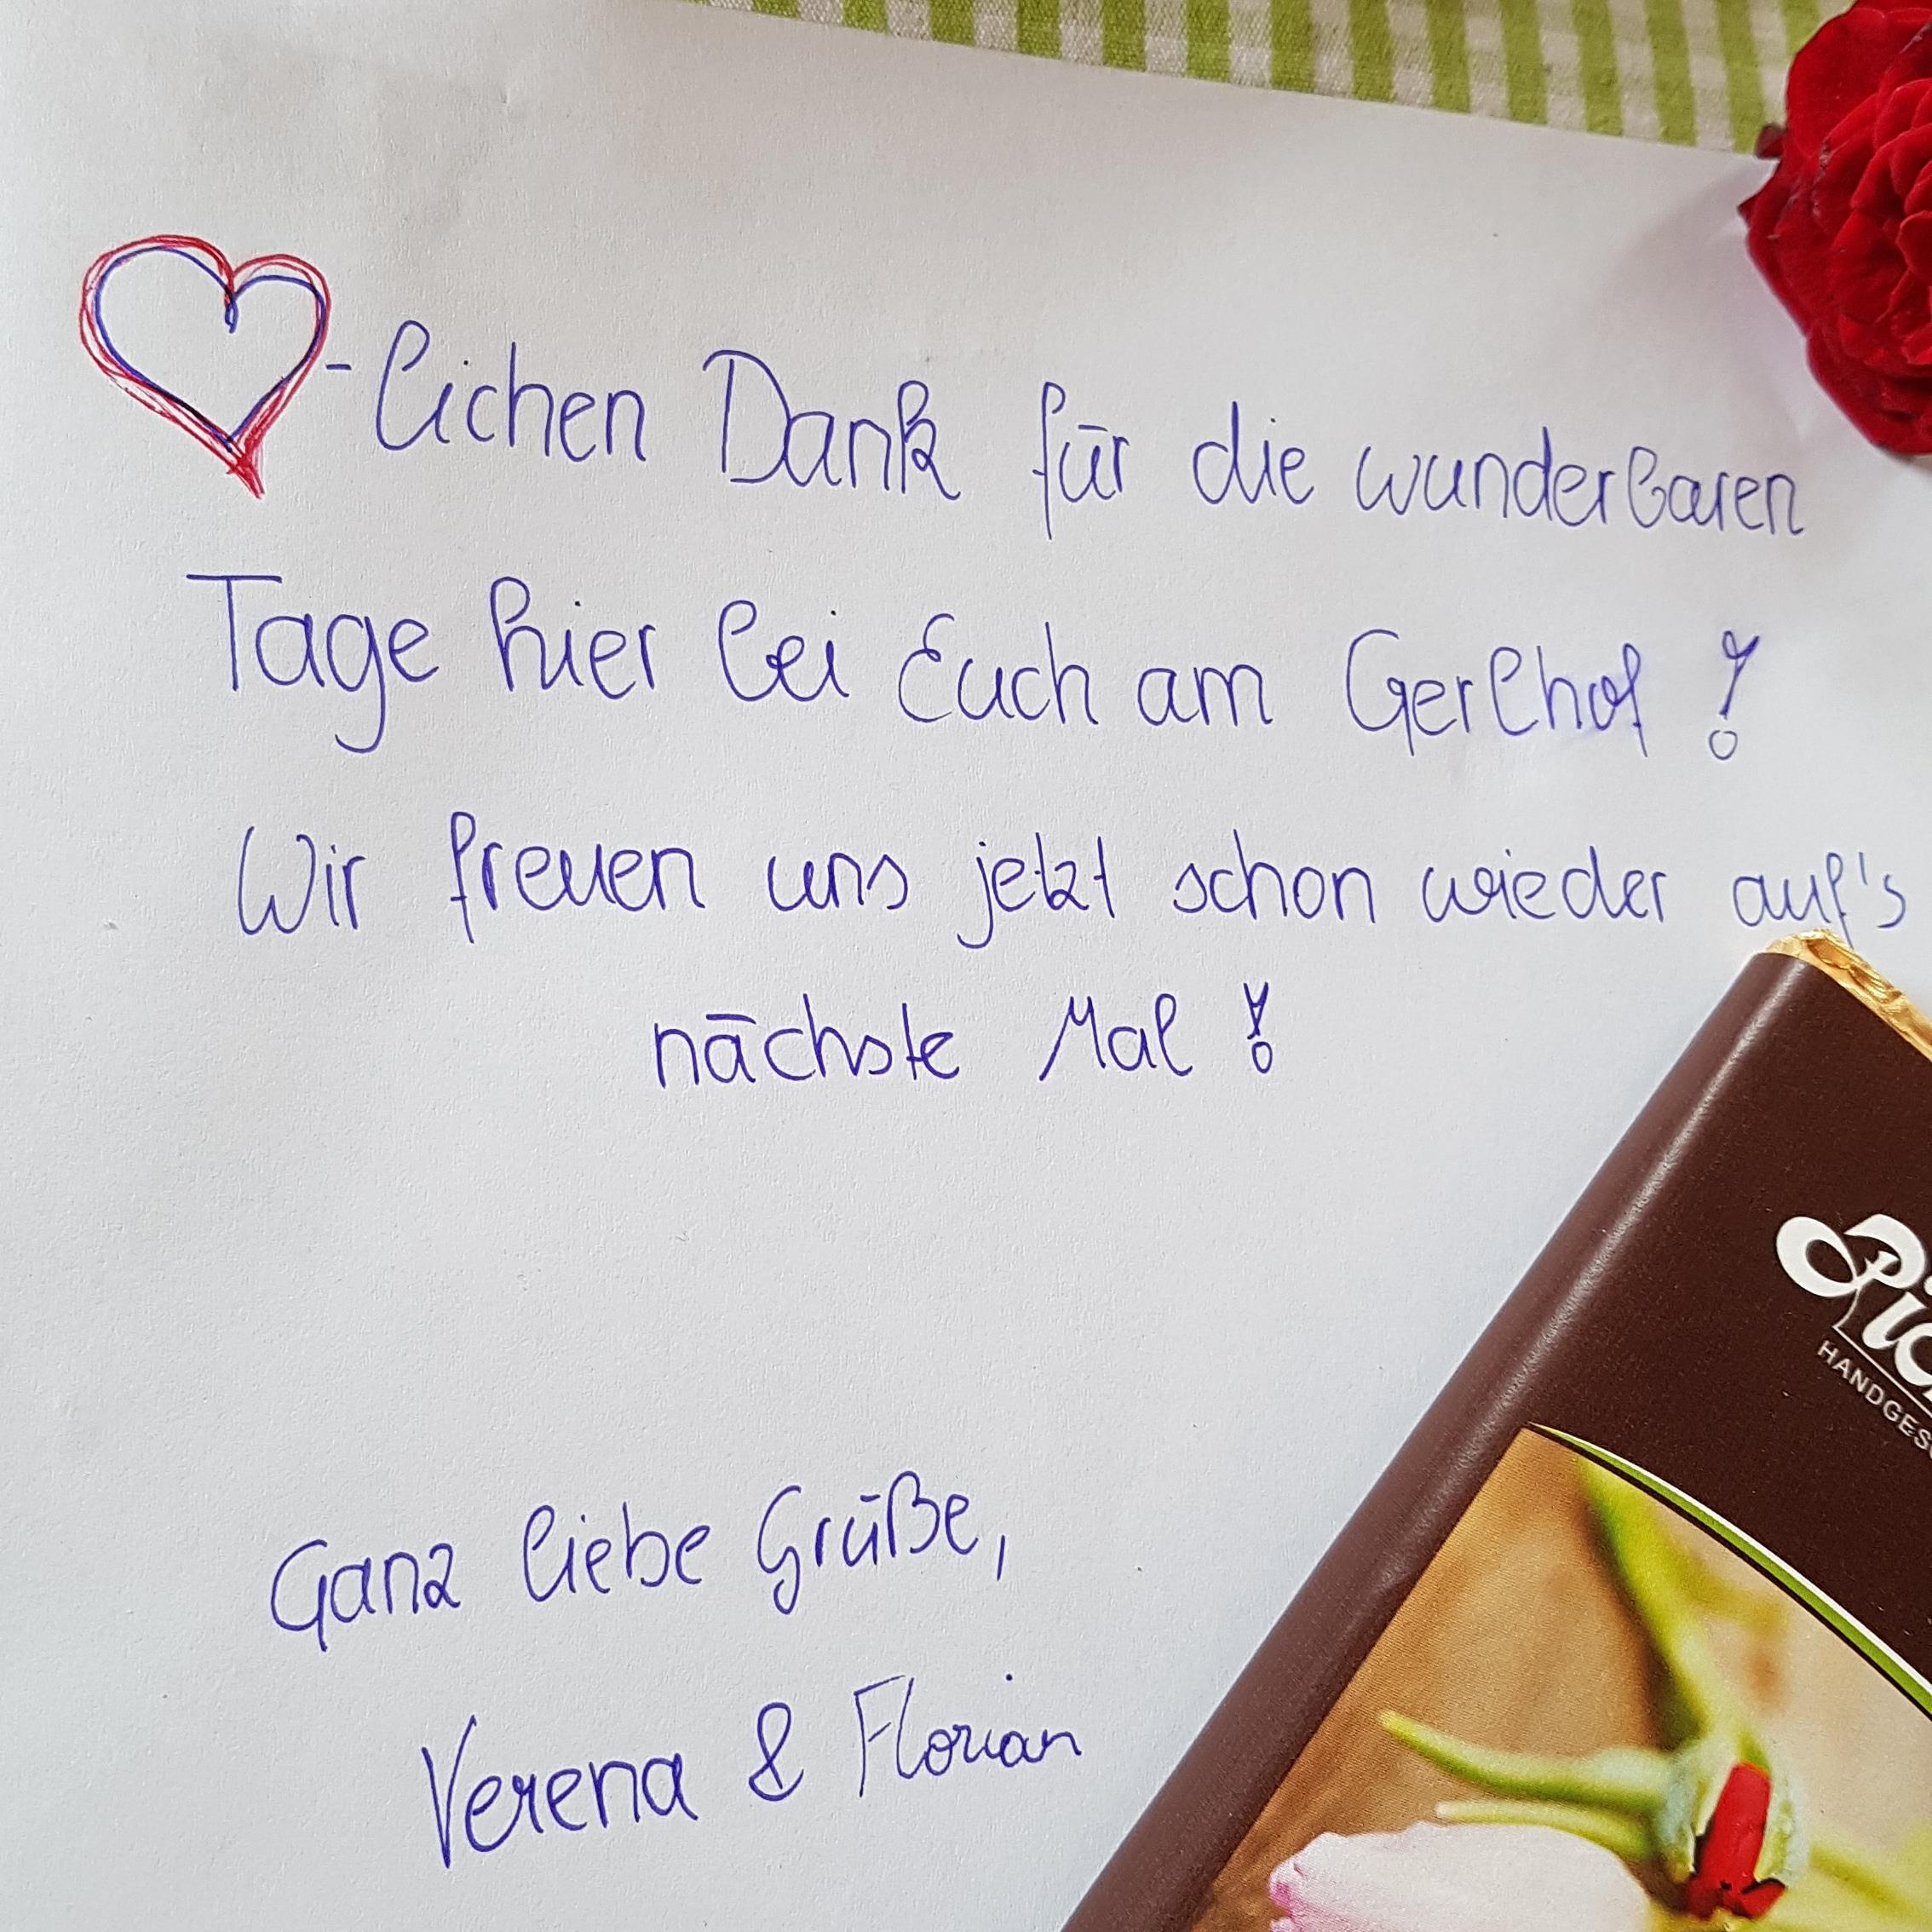 -lichen Dank für die wunderbaren
Tage hier bei Euch am Gerlhof!
Wir freuen uns jetzt schon wieder auf's
nächste Mal!
Ganz liebe Grüße,
Verena & Florian